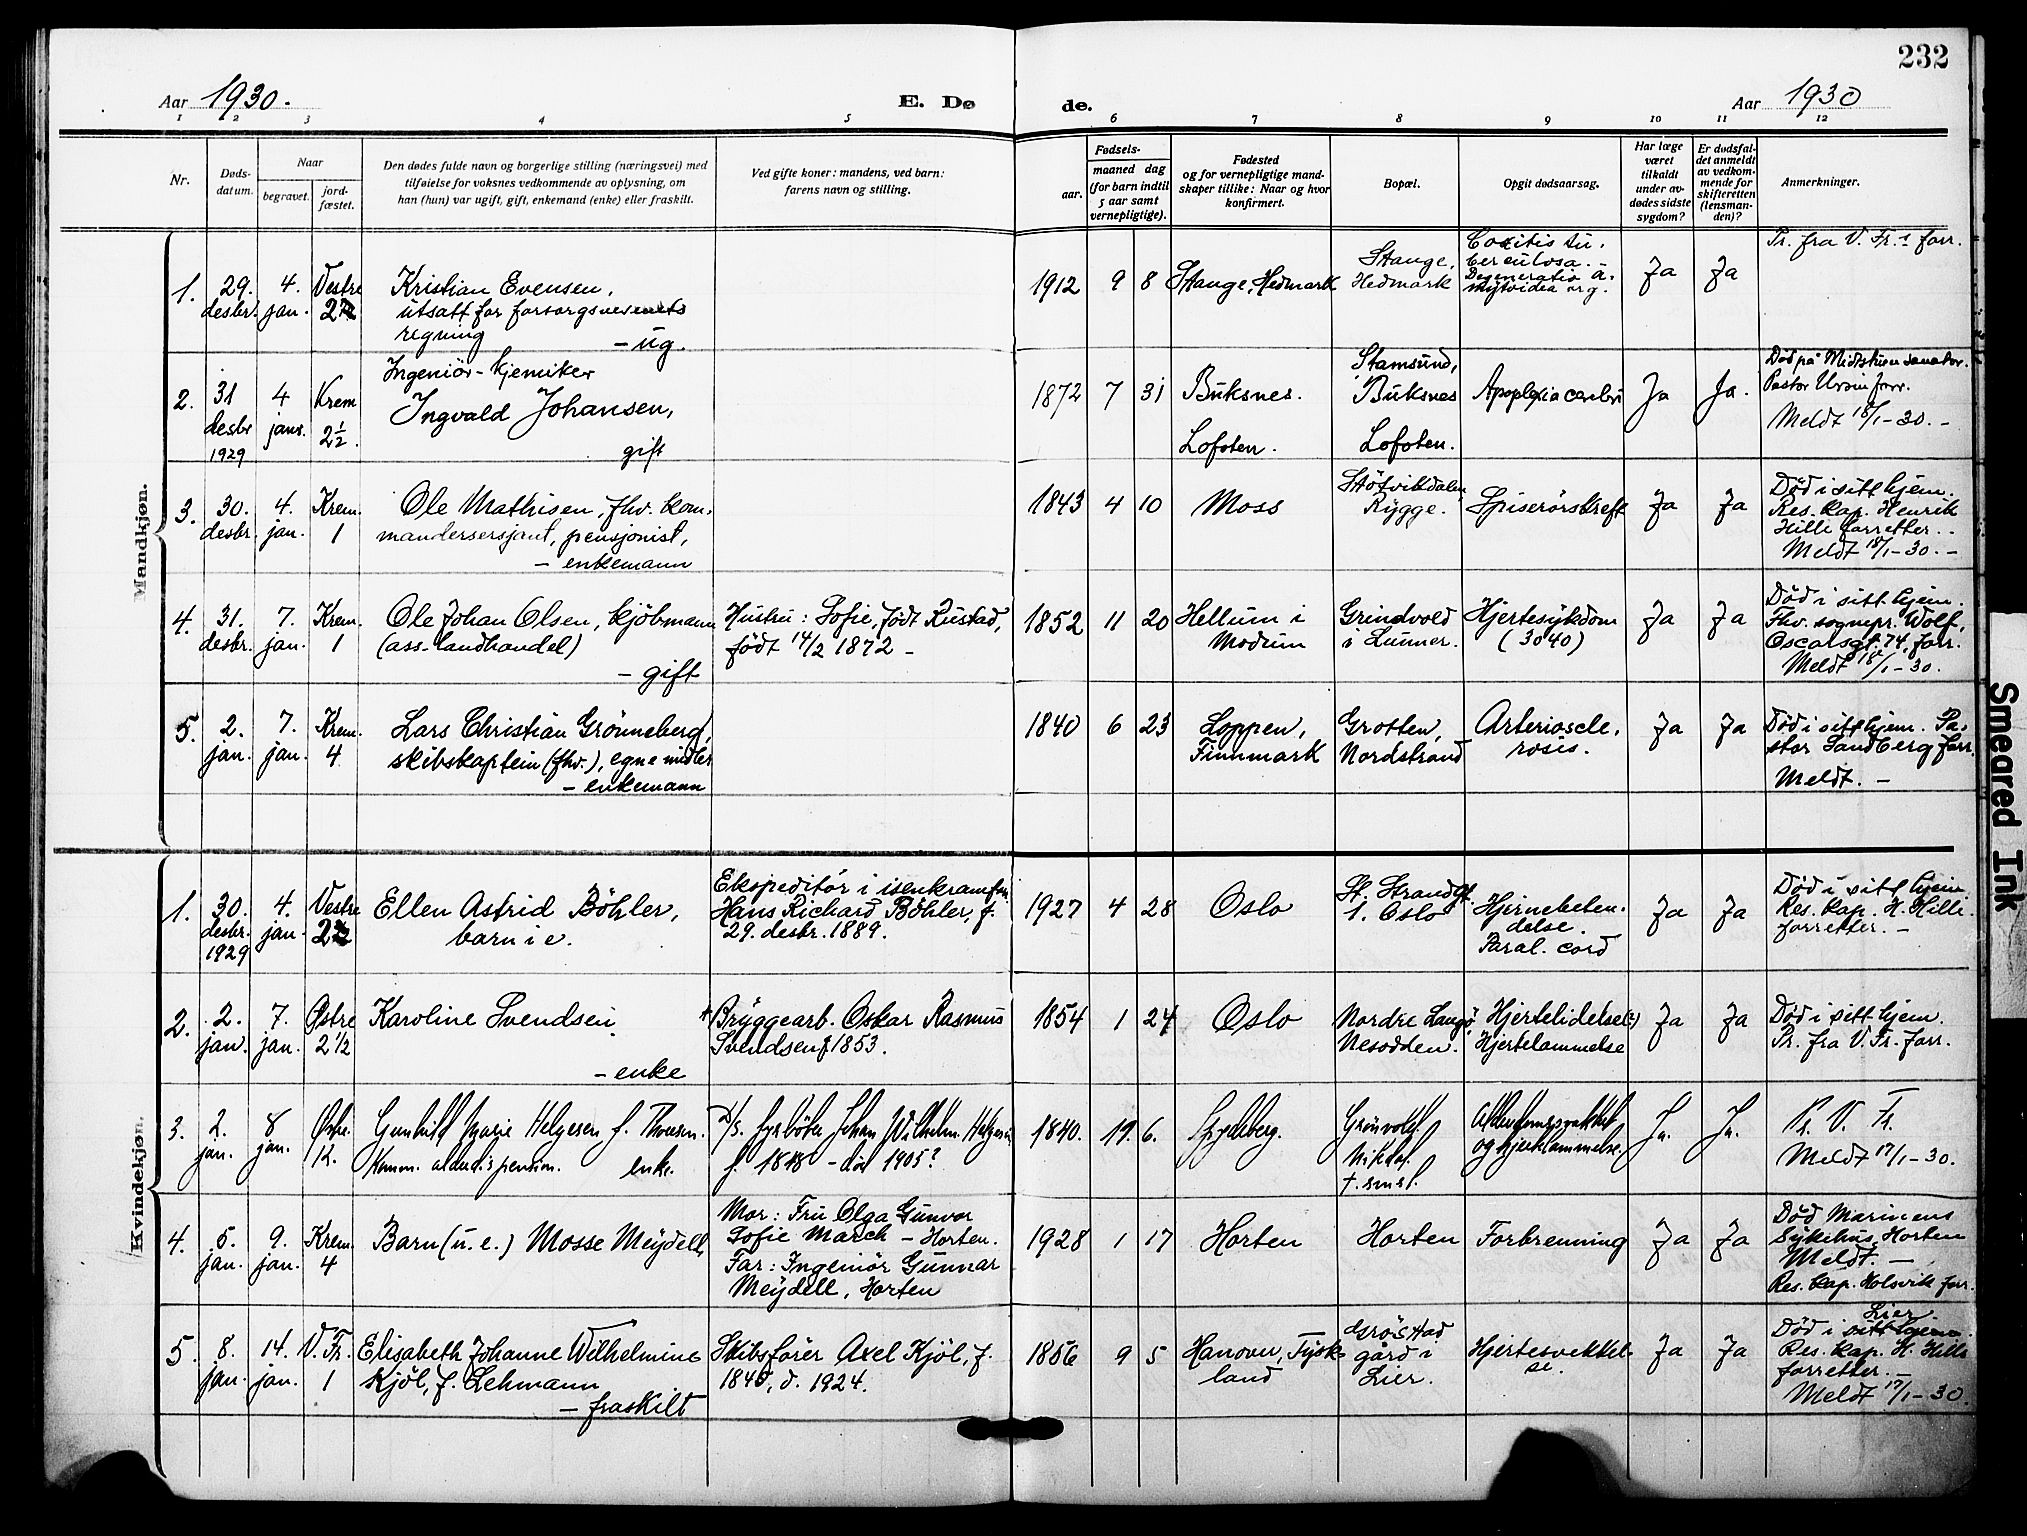 232
Aar 1930.
E. Dø
de.
Aar 1930
1 2 3 4 5 6 7 8 9 10 11 12
Nr.
Døds-
datum.
Naar
begravet.
jord-
fæstet.
Den dødes fulde navn og borgerlige stilling (næringsvei) med
tilføielse for voksnes vedkommende av oplysning, om
han (hun) var ugift, gift, enkemand (enke) eller fraskilt.
Ved gifte koner: mandens, ved barn:
farens navn og stilling.
Fødsels-
aar.
maaned dag
(for barn indtil
5 aar samt
vernepligtige).
Fødested
og for vernepligtige mand-
skaper tillike: Naar og hvor
konfirmert.
Bopæl.
Opgit dødsaarsag.
Har læge
været
tilkaldt
under av-
dødes sidste
sygdom?
Er dødsfal-
det anmeldt
av vedkom-
mende for
skifteretten
(lensman-
den)?
Anmerkninger.
Mandkjøn.
1.
29.
desbr.
4.
jan.
Vestre
Kristian Evensen,
utsatt for forsorgsvesenets
regning
- ug.
1912 9 8
Stange, Hedmark
Stange,
Hedmark
Coxitis tu-
berculosa. -
Degeneratio a-
Ja
Ja
Pr. fra V. Fr.s forr.
2.
31
desbr
1929
4
janr.
Krem
2 1/2.
Ingeniör-kjemiker
Ingvald Johansen,
gift
1872 7 31
Buksnes.
Lofoten.
Stamsund,
Buksnes
Lofoten.
Apoplexia cerebri
Ja
Ja.
Død på Midtstuen sanator.
Pastor Ursin forr.
Meldt 18/1-30. -
3.
30.
desbr.
4.
jan.
Krem.
1
Ole Mathisen, fhv. kom-
mandersersjant, pensjonist,
- enkemann
1843 4 10
Moss
Rygge.
Spiserørskreft
Ja
Ja
Död i sitt hjem.
Res. kap. Henrik
Hille forretter. -
Meldt 18/1-30. -
4.
31.
desbr.
7.
jan.
Krem.
1
Ole Johan Olsen, kjöbmann
(ass. landhandel)
- gift
Hustru: Sofie, født Rustad,
født 14/2 1872 -
1852 11 20
Hellum i
Modum
Grindvold
i Lunner.
Hjertesykdom
(3040)
Ja
Ja
Död i sitt hjem.
Fhv. sognepr. Wolf,
Oscarsgt. 74, forr.
Meldt 18/1-30.
5.
2.
jan.
7.
jan.
Krem.
4
Lars Christian Grönneberg,
skibskaptein (fhv.), egne midler
- enkemann
1840 6 23
Loppen,
Finnmark
Grotten,
Nordstrand
Arterioscle-
rosis.
Ja
Ja
Död i sitt hjem. Pa-
stor Sandberg forr.
Meldt. -
Kvindekjøn.
1.
30.
desbr.
1929
4.
jan.
Vestre
Ellen Astrid Böhler,
barn i e.
Ekspeditör i isenkramforr.
Hans Richard Böhler, f.
29. desbr. 1889.
1927 4 28
Oslo
St. Strandgt.
1. Oslo
Hjernebeten-
delse.
Paral. cord
Ja
Ja
Död i sitt hjem
Res. kap. H. Hille
forretter. -
2.
2.
jan.
7.
jan.
Østre
2 1/2
Karoline Svendsen
- enke
Bryggearb. Oskar Rasmus
Svendsen f. 1853.
1854 1 24
Oslo
Nordre Langö
Nesodden.
Hjertelidelse(?)
Hjertelammelse
Ja
Ja
Död i sitt hjem.
Pr. fra V. Fr. forr.
3.
2.
jan.
8
jan.
Østre.
12.
Gunhild Marie Helgesen f. Thoresen.
Komm. alderdspension. enke.
fyrböter Johan Wilhelm Helgesen
f. 1848 - död 1905?
1840. 19. 6.
Spydeberg.
Grönvold.
Alderdomssvakhet
og hjertelammelse.
Ja.
Ja.
Pr. V. Fr.
Meldt 17/1-30.
4.
5.
jan.
9.
jan.
Krem.
4
Barn (u. e.) Mosse Meydell
Mor: Fru Olga Gunvor
Sofie March - Horten.
Far: Ingeniör Gunnar
Meydell, Horten
1928 1 17
Horten
Horten
Forbrenning
Ja
Ja
Död Marinens
Sykehus, Horten
Meldt. -
Res. kap. Holsvik forr.
5.
8.
jan.
14.
jan.
V. Fr.
1
Elisabeth Johanne Wilhelmine
Kjöl, f. Lehmann
- fraskilt
Skibsfører Axel Kjöl, f.
1845, d. 1924.
1856 9 5
Hanover, Tysk-
land
Gröstad
gård i
Lier.
Hjertesvekkel-
se.
Ja
Ja
Lier.
Död i sitt hjem.
Res. kap. H. Hille
forretter. -
Meldt 17/1-30.
Smeared Ink